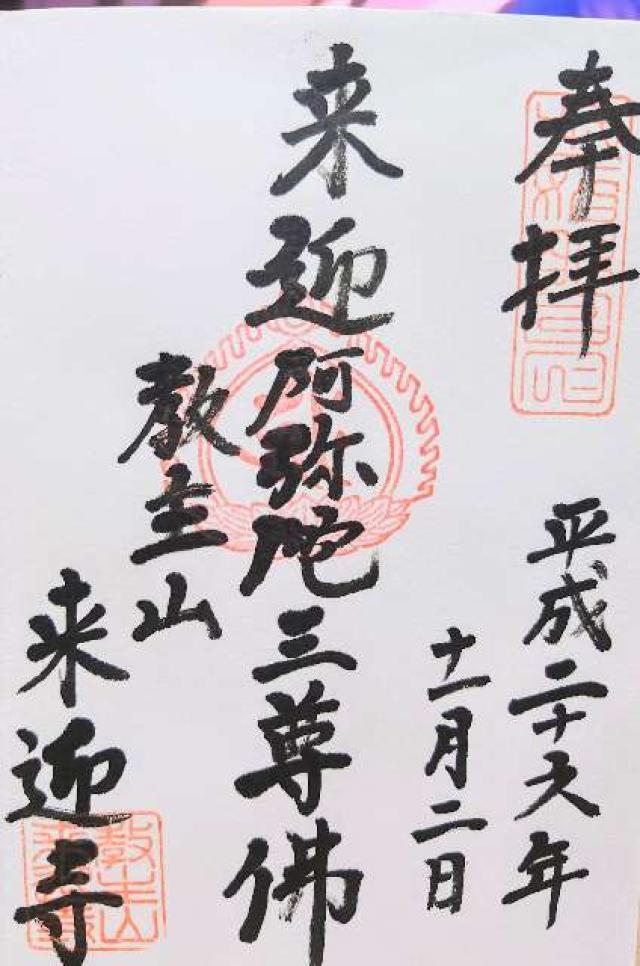 奉拝
平成二十六年
十一月二日
来迎阿弥陀三尊佛
教主山
来迎寺